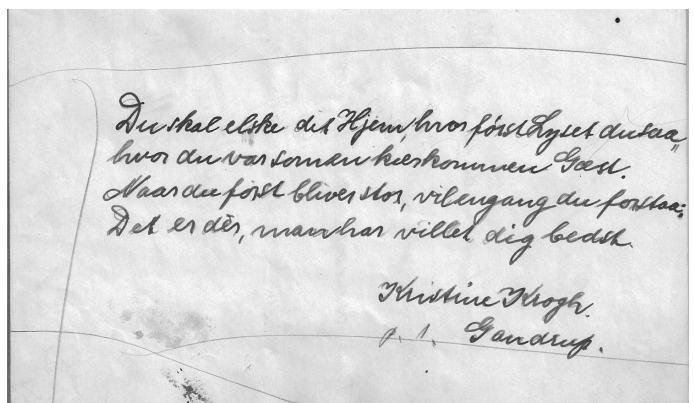 Du skal elske dit Hjem, hvor först Lyset du saa,
hvor du var som en kærkommen Gæst.
Naar du först bliver stor, vil engang du forstaa:
Det er dèr, man har villet dig bedst.
Kristine Krogh.
p. t. Gandrup.